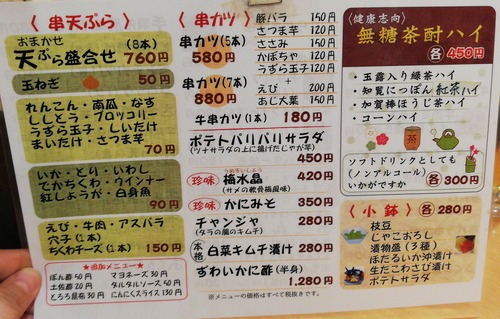 〈串天ぷら〉
おまかせ
天ぷら盛合せ (8本) 760円
玉ねぎ 50円
れんこん・南瓜・なす
ししとう・ブロッコリー
うずら玉子・しいたけ
まいたけ・さつま芋
70円
いか・とり・いわし
てかちくわ・ウインナー
紅しょうが・白身魚
90円
えび・牛肉・アスパラ
穴子(1本)
ちくわチーズ(1本) 150円
★追加メニュー★
ぽん酢 50円 マヨネーズ 30円
土佐酢 20円 タルタルソース 50円
とろろ昆布 30円 にんにくスライス 130円
〈串カツ〉
串カツ(5本)
580円
串カツ(7本)
880円
豚バラ 150円
さつま芋 120円
ささみ 150円
かぼちゃ 120円
うずら玉子 120円
+
えび 200円
あじ大葉 150円
牛串カツ(1本) 180円
ポテトパリパリサラダ
(ツナサラダの上に揚げたじゃが芋)
450円
珍味 梅水晶 420円
うめすいしょう
(サメの軟骨梅肉風味)
珍味 かにみそ 350円
チャンジャ 280円
(タラの腸のキムチ)
本格 白菜キムチ漬け 280円
ずわいかに酢(半身)
1,280円
※メニューの価格はすべて税抜きです。
〈健康志向〉
無糖茶酎ハイ
各450円
・玉露入り緑茶ハイ
・知覧にっぽん紅茶ハイ
・加賀棒ほうじ茶ハイ
・コーンハイ
茶
ソフトドリンクとしても
(ノンアルコール)
いかがですか 各300円
〈小鉢〉各280円
枝豆
じゃこおろし
漬物盛(3種)
ほたるいか沖漬け
生たこわさび漬け
ポテトサラダ